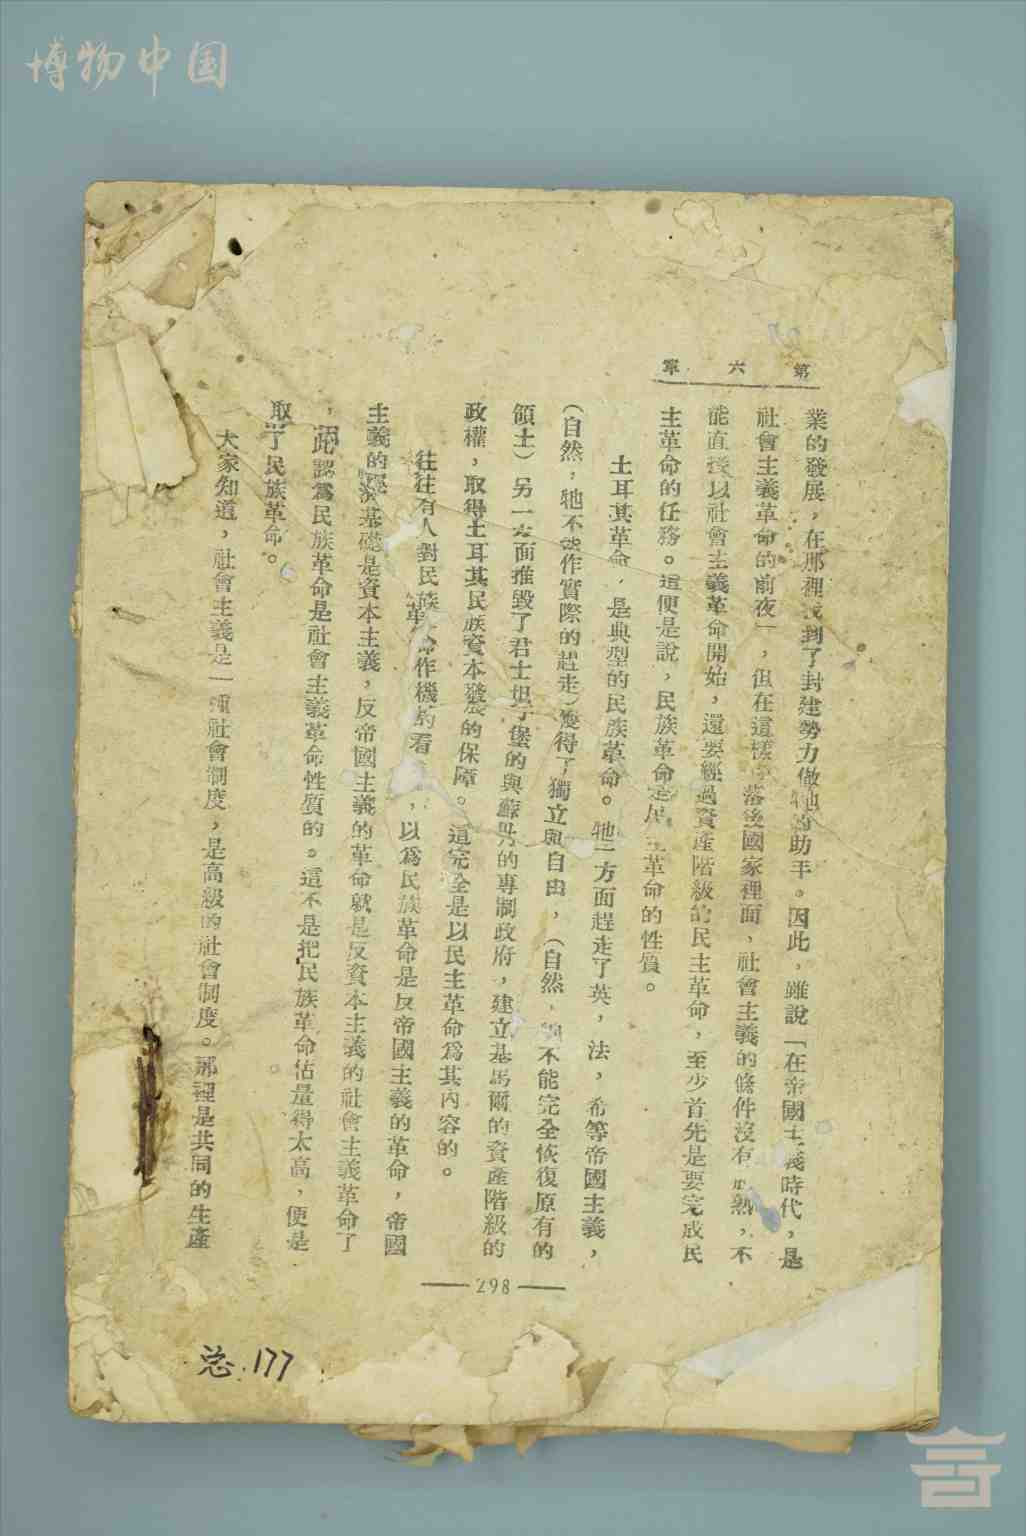 博物中国
第六章
業的發展，在那裡找到了封建勢力做牠的助手。因此，雖說「在帝國主義時代，是
社會主義革命的前夜」，但在這樣落後國家裡面，社會主義的條件沒有成熟，不
能直接以社會主義革命開始，還要經過資產階級的民主革命，至少首先是要完成民
主革命的任務。這便是說，民族革命是民主革命的性質。
土耳其革命，是典型的民族革命。牠一方面趕走了英，法，希等帝國主義，
（自然，牠不能作實際的趕走）獲得了獨立與自由，（自然，牠不能完全恢復原有的
領土）另一方面推毀了君士坦丁堡的與蘇丹的專制政府，建立基馬爾的資產階級的
政權，取得土耳其民族資本發展的保障。這完全是以民主革命爲其內容的。
往往有人對民族革命作機的看，以爲民族革命是反帝國主義的革命，帝國
主義的經濟基礎是資本主義，反帝國主義的革命就是反資本主義的社會主義革命了
，因此認爲民族革命是社會主義革命性質的。這不是把民族革命估量得太高，便是
取了民族革命。
大家知道，社會主義是一種社會制度，是高級的社會制度。那裡是共同的生產
298
总.177